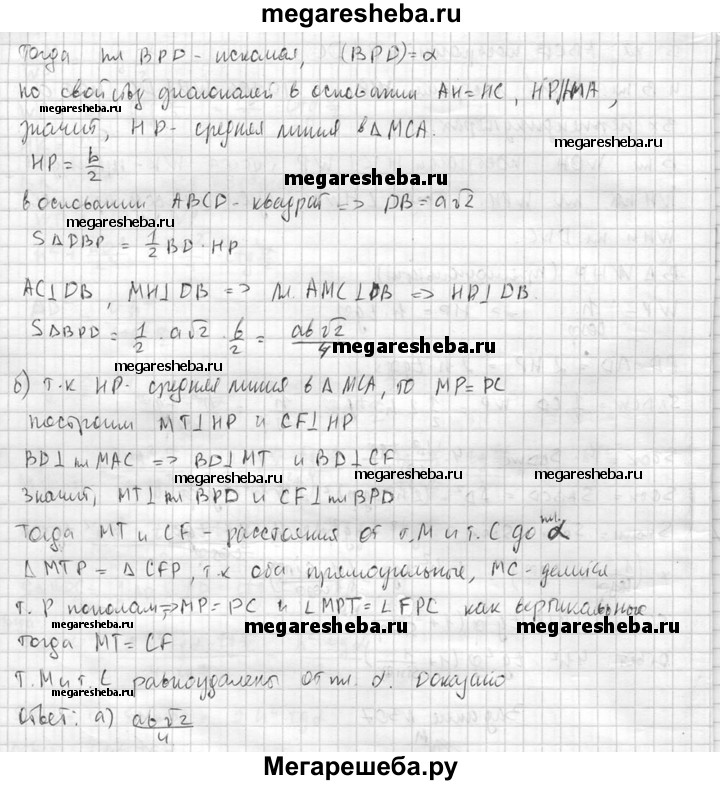 megaresheba.ru
Тогда пл BPD - искомая, (BPD)=α
по свойству диагоналей в основании AH=HC, HP∥MA,
megaresheba.ru
megaresheba.ru
значит, HP - средняя линия в Δ MCA.
HP = b/2
megaresheba.ru
в основании ABCD - квадрат => DB = a√2
megaresheba.ru
SΔDBP = 1/2 BD · HP
AC⊥DB, MH⊥DB => пл. AMC⊥DB => HP⊥DB
SΔBPD = 1/2 · a√2 · b/2 = ab√2/4
megaresheba.ru
megaresheba.ru
б) т.к HP - средняя линия в Δ MCA, то MP=PC
построим MT⊥HP и CF⊥HP
BD⊥пл MAC => BD⊥MT и BD⊥CF
megaresheba.ru megaresheba.ru megaresheba.ru
значит, MT⊥пл BPD и CF⊥пл BPD
Тогда MT и CF - расстояния от т.M и т.C до пл. α
Δ MTP = Δ CFP, т.к оба прямоугольные, MC - делится
т. P пополам => MP = PC и ∠MPT = ∠FPC как вертикальные.
megaresheba.ru megaresheba.ru
Тогда MT = CF
т. M и т. C равноудалены от пл. α. Доказано
megaresheba.ru
Ответ: а) ab√2/4
Мегарешеба.ру